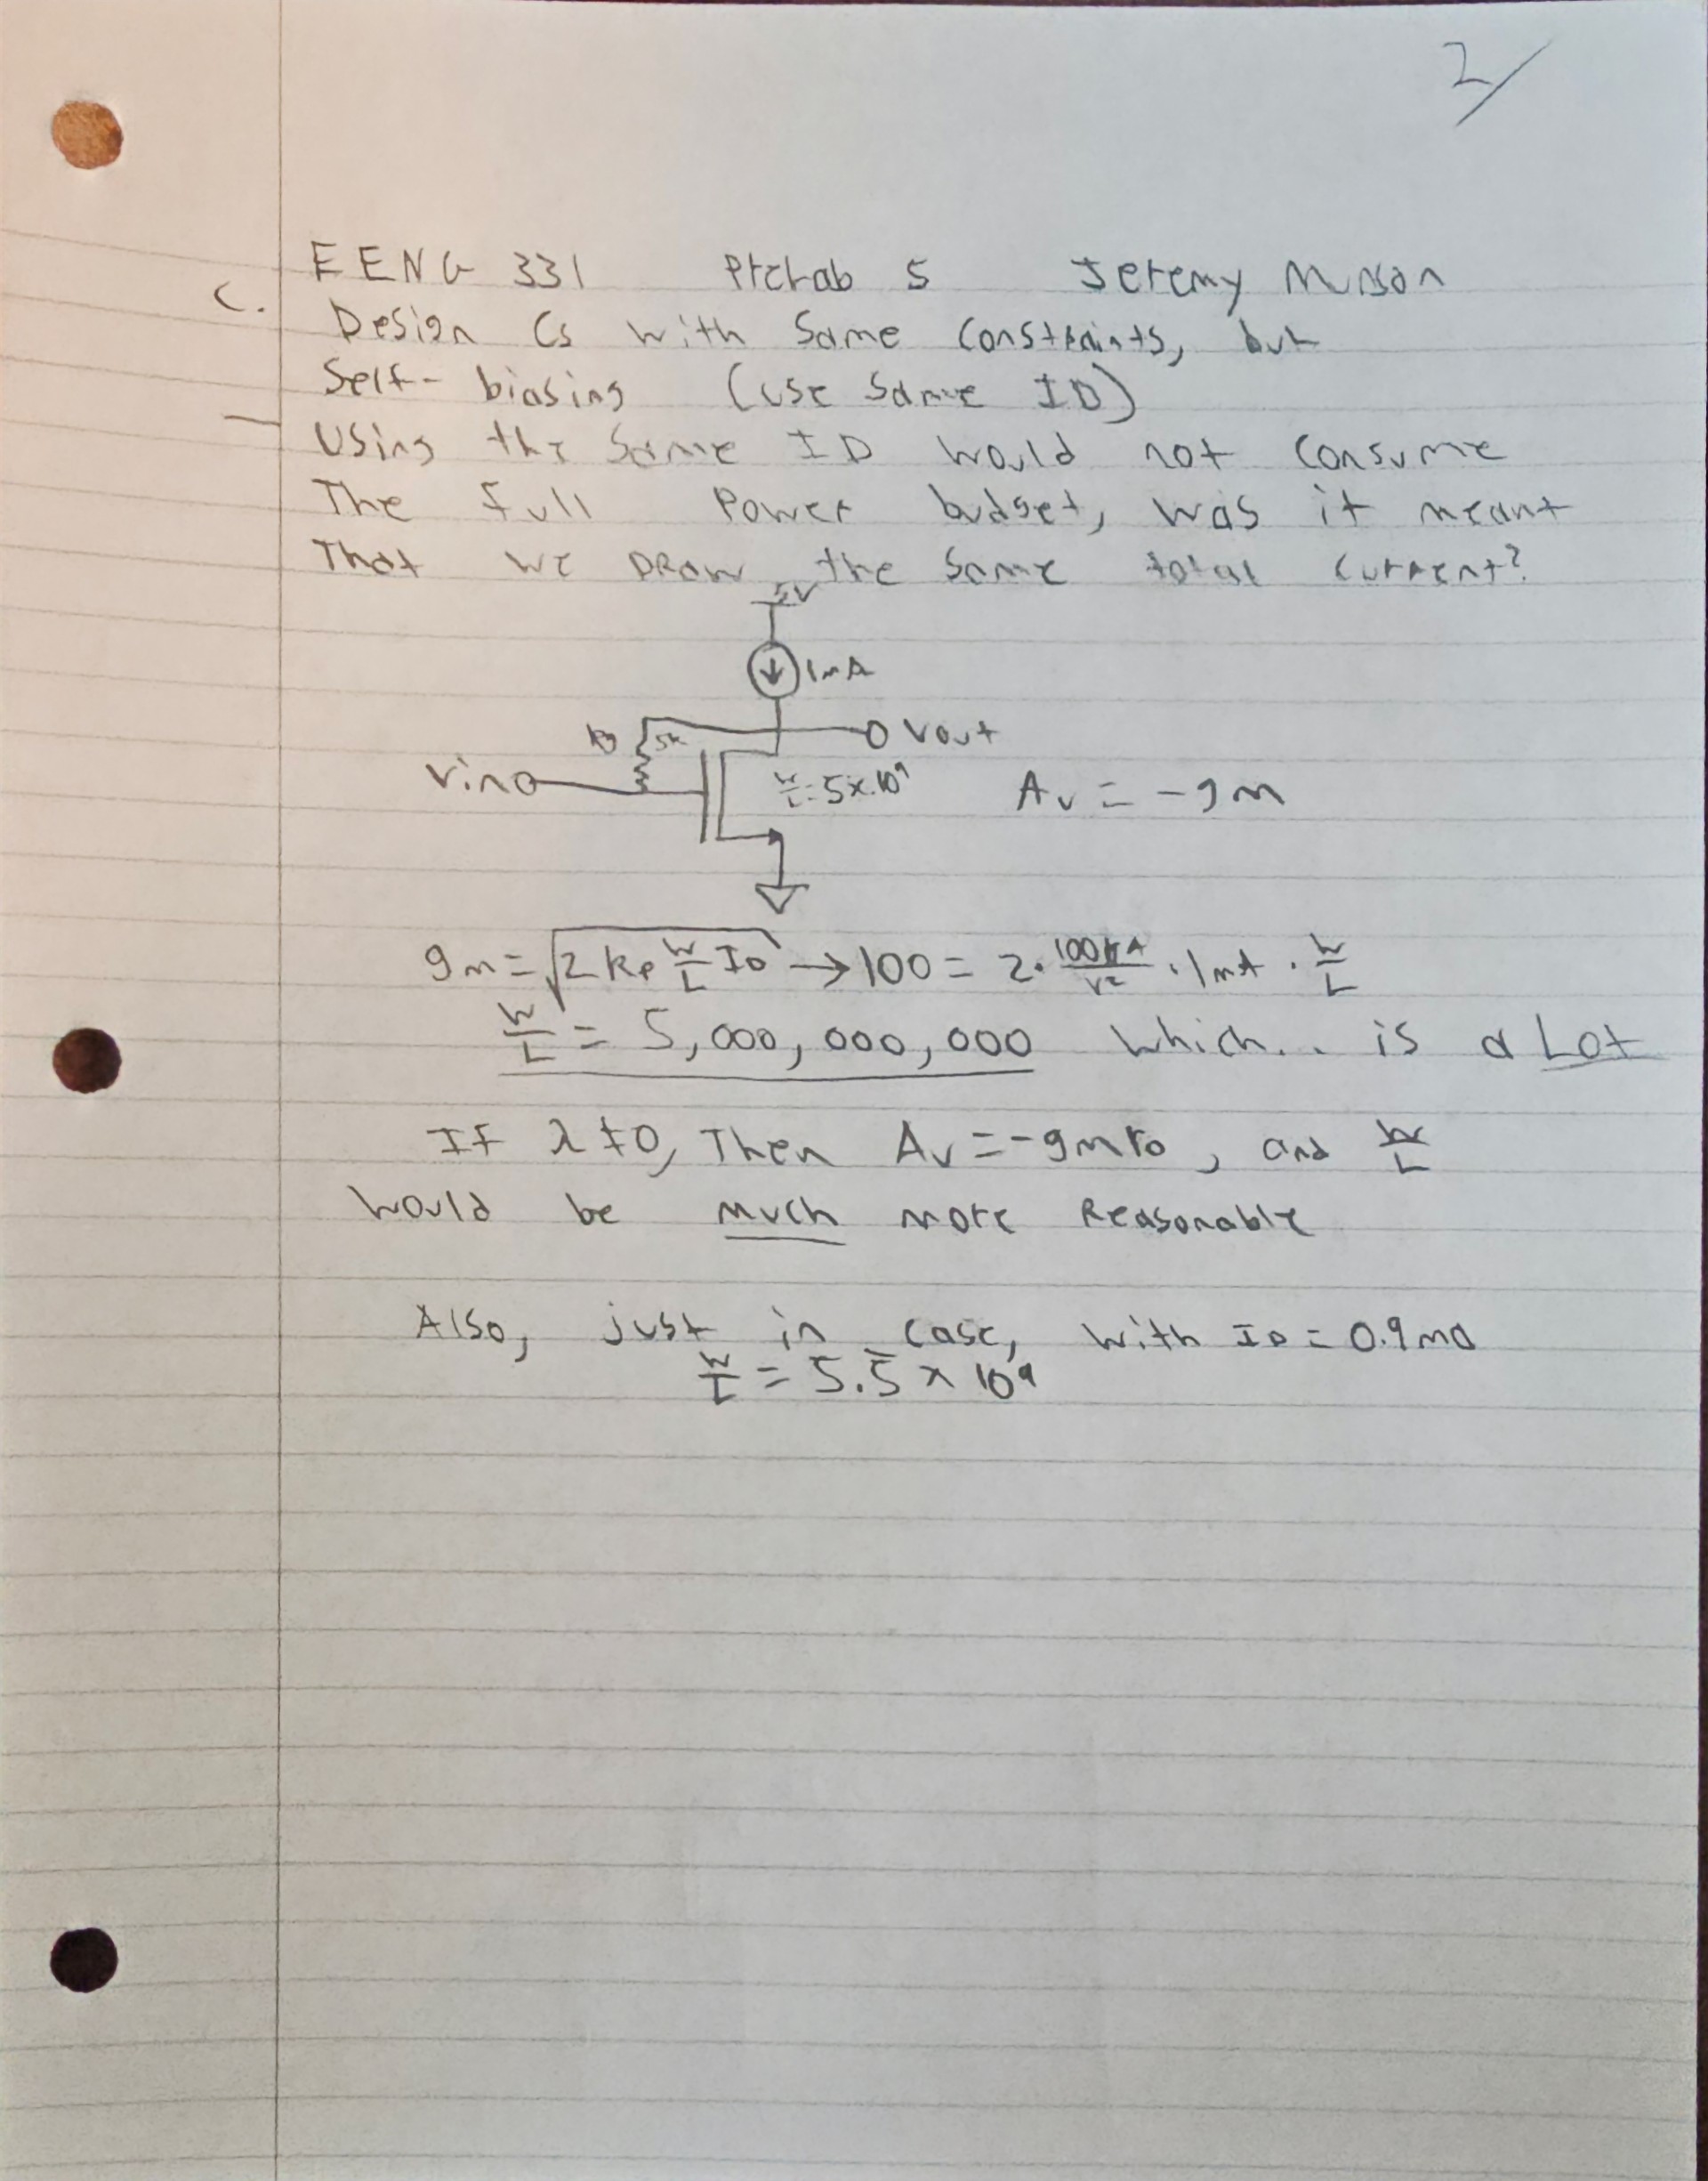 2/
EENG 331 PreLab 5 Jeremy Munson
C.
Design CS with Same Constraints, but
Self-biasing (use same ID)
Using the same ID would not consume
The full Power budget, was it meant
That we DRaw the Same total current?
5V
1mA
5k Vout
Vin W/L=5x10⁹ Av = -gm
gm = √(2 kp W/L ID) → 100 = 2 · 100μA/V² · 1mA · W/L
W/L = 5,000,000,000 which.. is a Lot
If λ≠0, Then Av = -gmro, and W/L
would be much more Reasonable
Also, just in case, with ID = 0.9mA
W/L = 5.5 x 10⁹